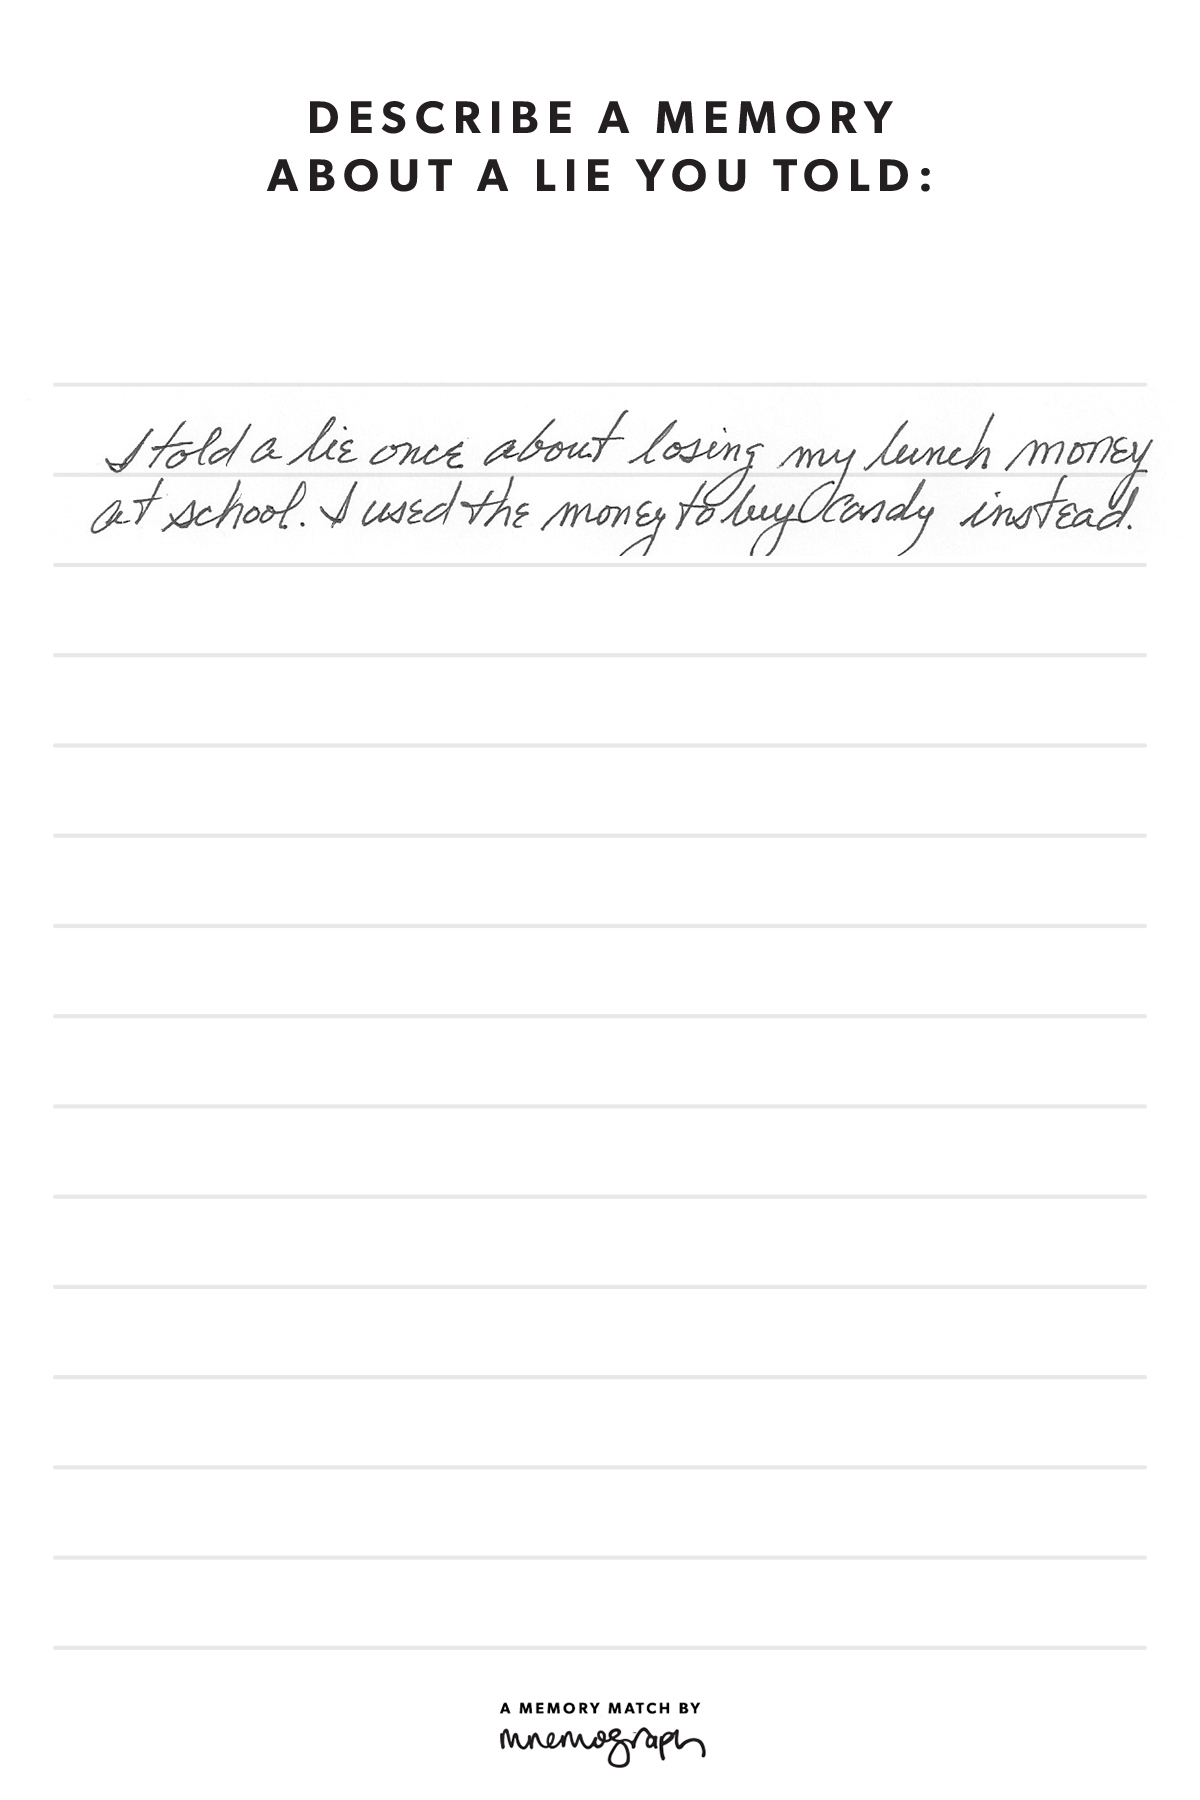 DESCRIBE A MEMORY
ABOUT A LIE YOU TOLD:
I told a lie once about losing my lunch money
at school. I used the money to buy candy instead.
A MEMORY MATCH BY
mnemograph